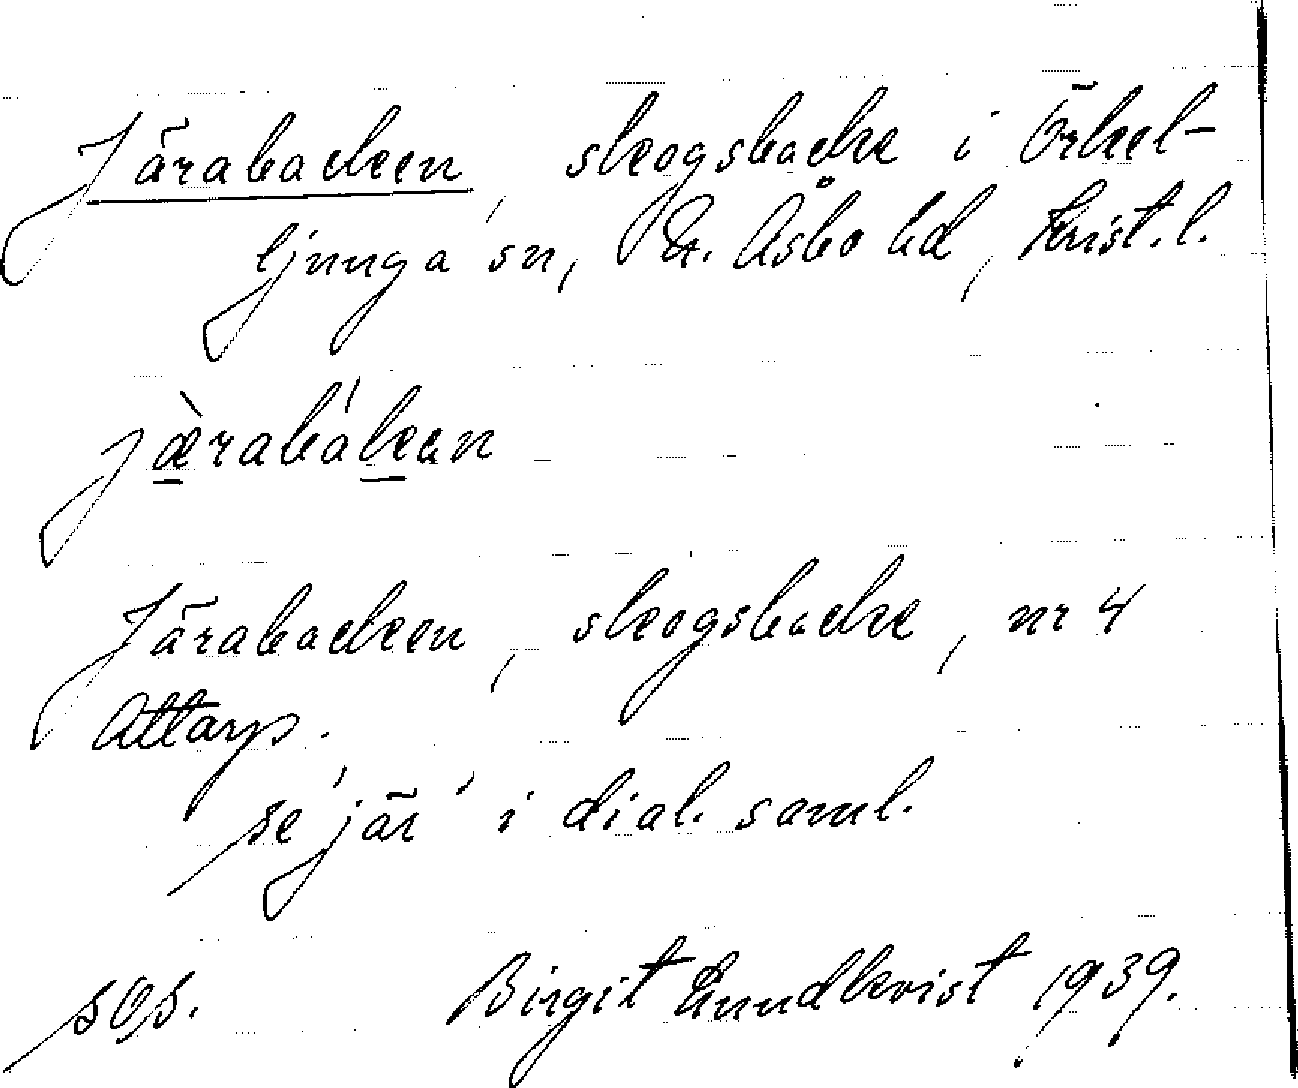 Järabacken, skogsbacke i Örkel-
ljunga sn, N. Åsbo hd, Krist.l.
jæ̀rabákən
Järabacken, skogsbacke, nr 4
Attarp.
se 'jär' i dial. saml.
sOs. Birgit Lundkvist 1939.